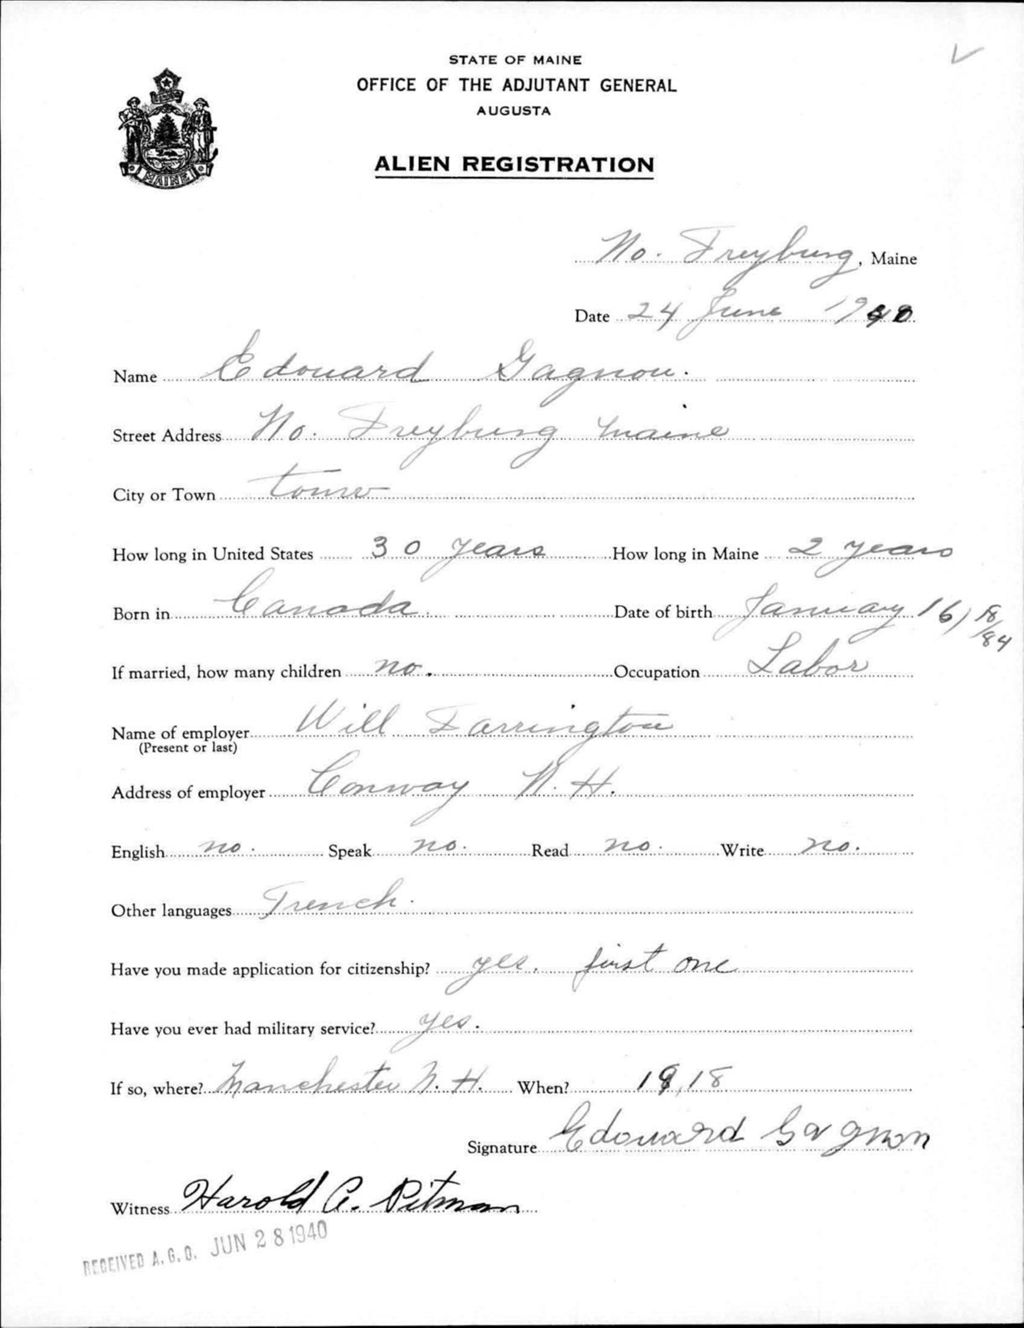 STATE OF MAINE
OFFICE OF THE ADJUTANT GENERAL
AUGUSTA
ALIEN REGISTRATION
MAINE
No. Freyburg, Maine
Date 24 June 1940
Name Edouard Gagnon.
Street Address No. Freyburg Maine
City or Town town
How long in United States 30 years How long in Maine 2 years
Born in Canada. Date of birth January 16, 18/84
If married, how many children no. Occupation Labor
Name of employer Will Farrington
(Present or last)
Address of employer Conway N. H.
English no. Speak no. Read no. Write no.
Other languages French.
Have you made application for citizenship? yes. first one
Have you ever had military service? yes.
If so, where? Manchester N. H. When? 1918
Signature Edouard Gagnon
Witness Harold C. Pitman
RECEIVED A.G.O. JUN 28 1940